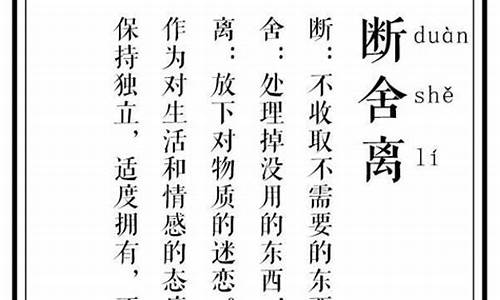 断舍离
duàn
shě
lí
断：不收取不需要的东西
舍：处理掉没用的东西
离：放下对物质的迷恋。
作为对生活和情感的态度
保持独立，适度拥有，